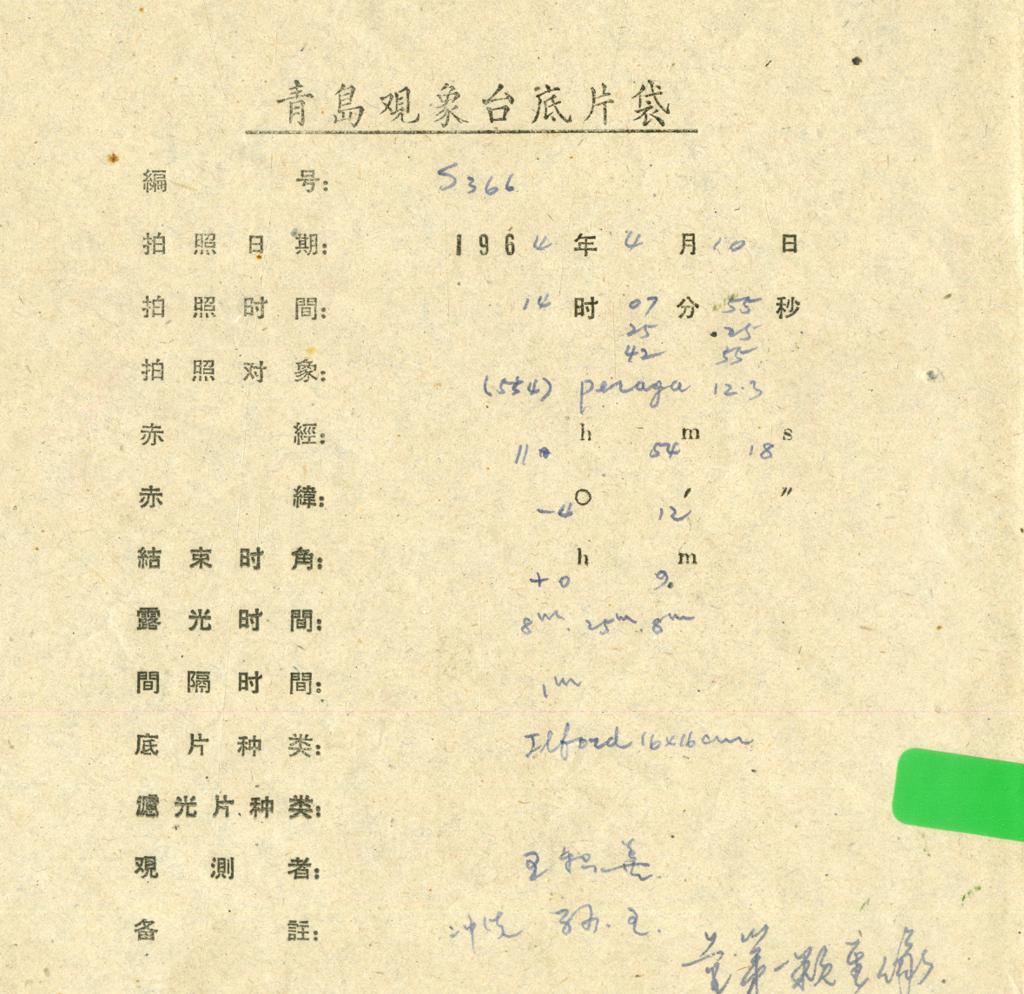 青島观象台底片袋
編号： S366
拍照日期： 1964年4月10日
拍照时間： 14时07分55秒
25 25
42 55
拍照对象： (554) peraga 12.3
赤經： 11h 54m 18s
赤緯： -4° 12′ ″
結束时角： +0h 9.m
露光时間： 8m. 25m. 8m
間隔时間： 1m
底片种类： Ilford 16x16cm
濾光片种类：
观測者： 王
备註： 冲洗 孙.王.